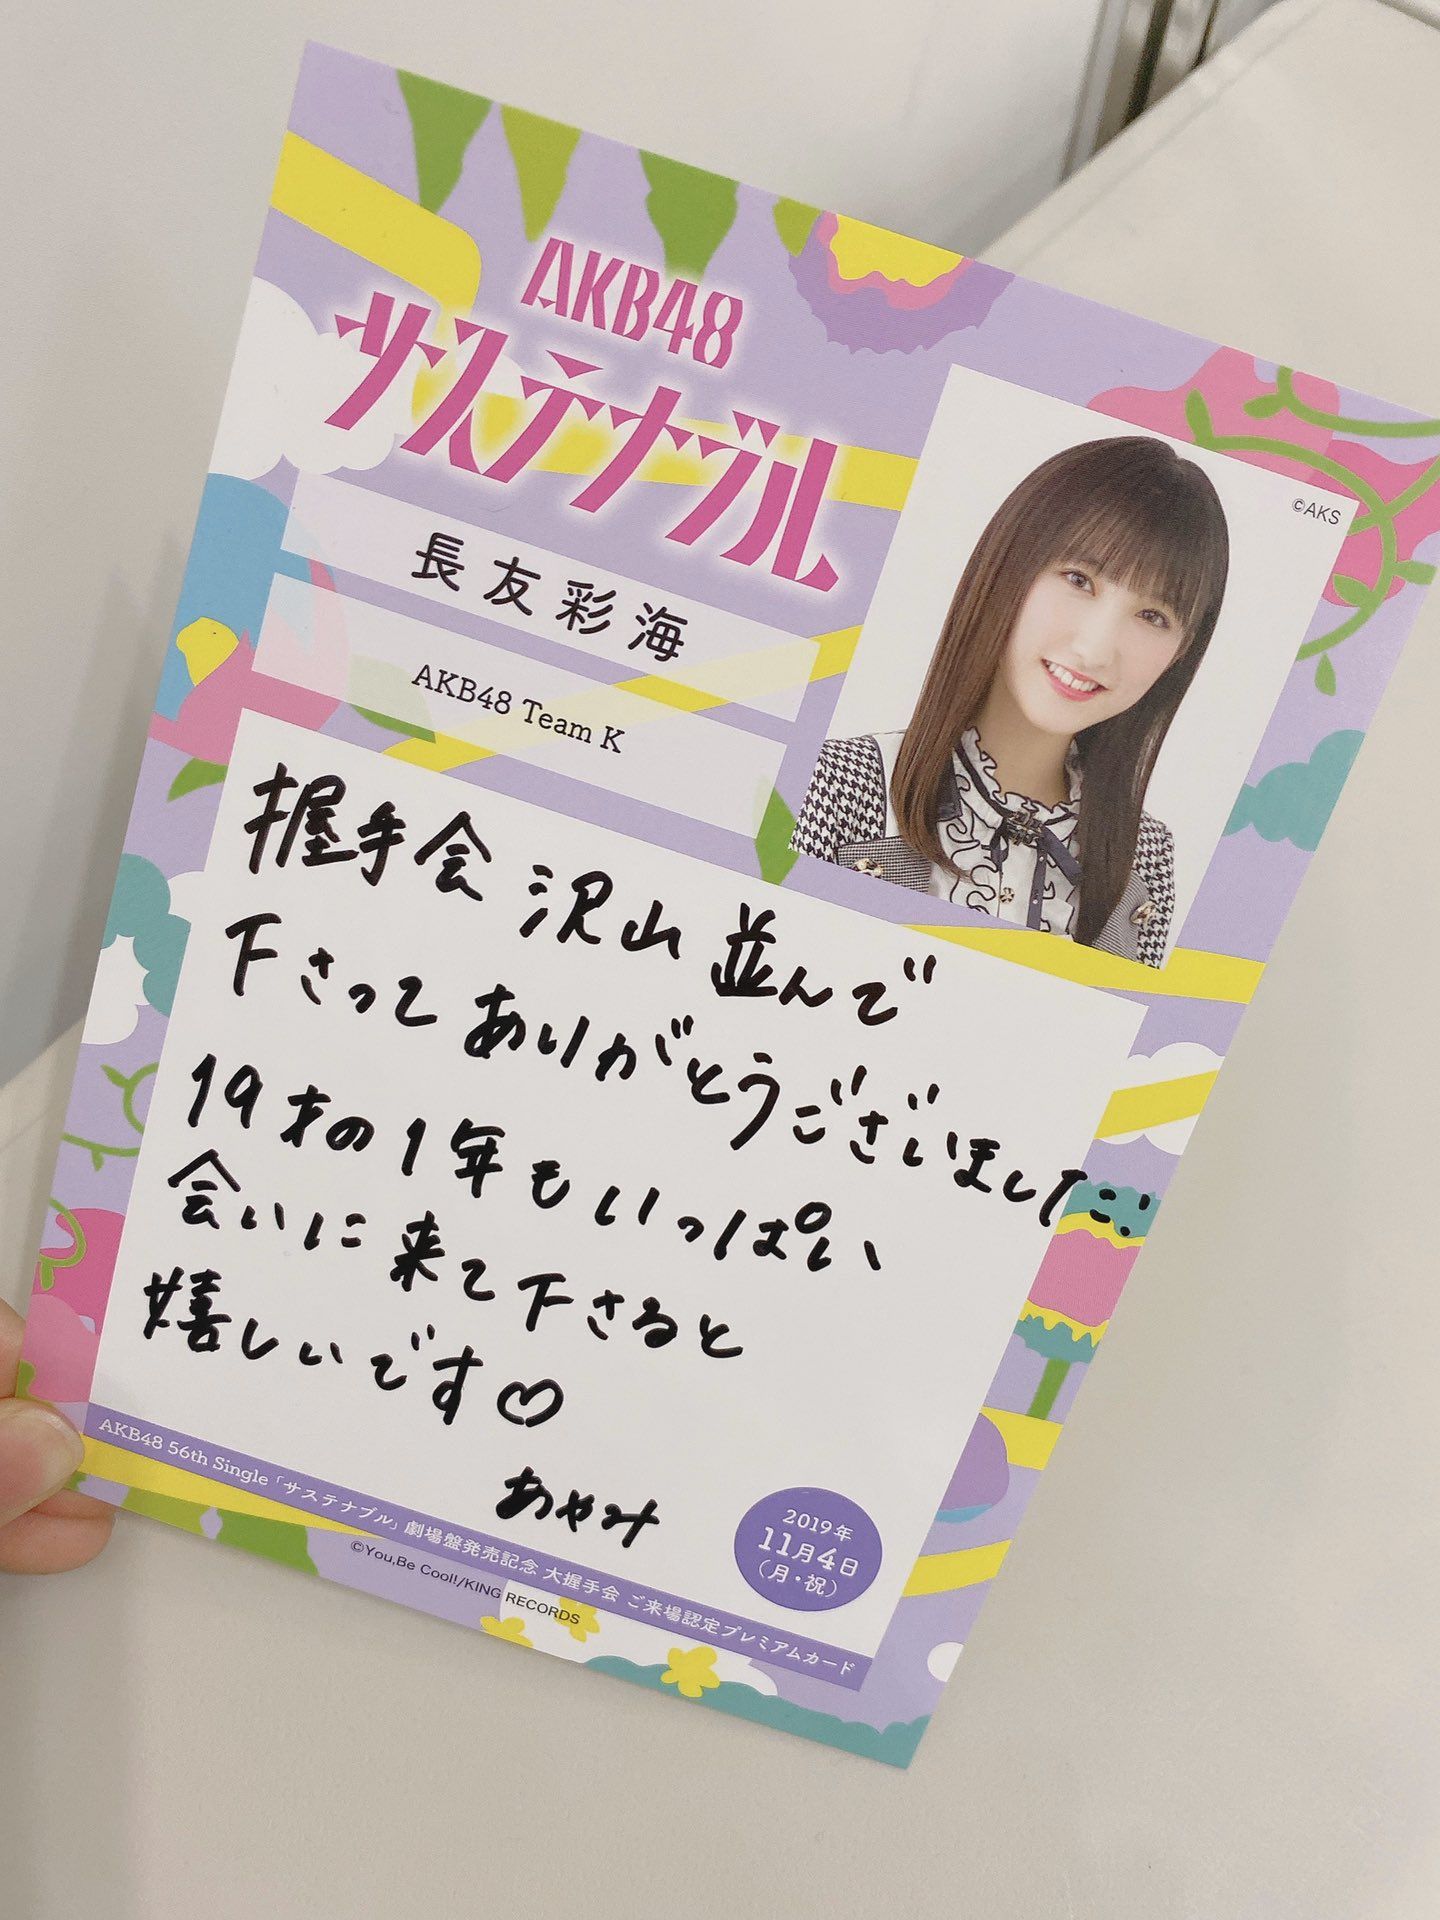 AKB48
サステナブル
©AKS
長友彩海
AKB48 Team K
握手会 沢山 並んで
下さって ありがとうございました¨̮
19才の1年もいっぱい
会いに来て下さると
嬉しいです♡
あやみ
2019年
11月4日
(月・祝)
AKB48 56th Single「サステナブル」劇場盤発売記念 大握手会 ご来場認定プレミアムカード
©You,Be Cool!/KING RECORDS